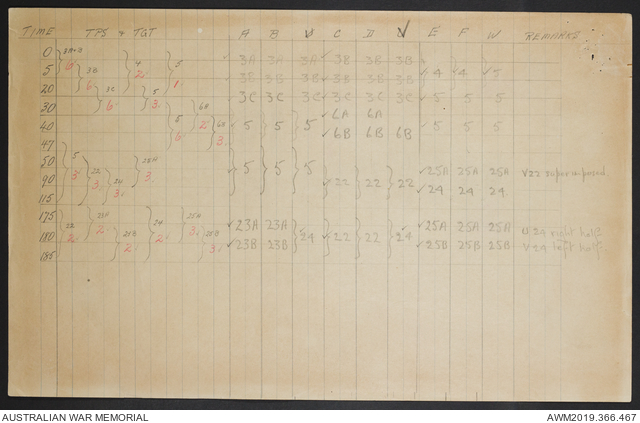 TIME TPS & TGT A B U C D V E F W REMARKS
0 3A 3A 3A 3B 3B 3B
5 3B 4 2. 5 3B 3B 3B 3B 3B 3B 4 4 5
20 3C 6. 5 3. 1. 3C 3C 3C 3C 3C 3C 5 5 5
30 5 6B 6A 6A
40 6. 2. 3. 5 5 5 6B 6B 6B 5 5 5
47
50 5 22 5 5 5 25A 25A 25A V22 superimposed
90 3. 3. 24 3. 22 22 22 24 24 24
115 3.
175 22 23A 24 25A 23A 23A 25A 25A 25A U 24 right half
180 2. 2. 23B 2. 3. 25B 23B 23B 24 22 22 24 25B 25B 25B V 24 left half
185 2. 3.
AUSTRALIAN WAR MEMORIAL AWM2019.366.467